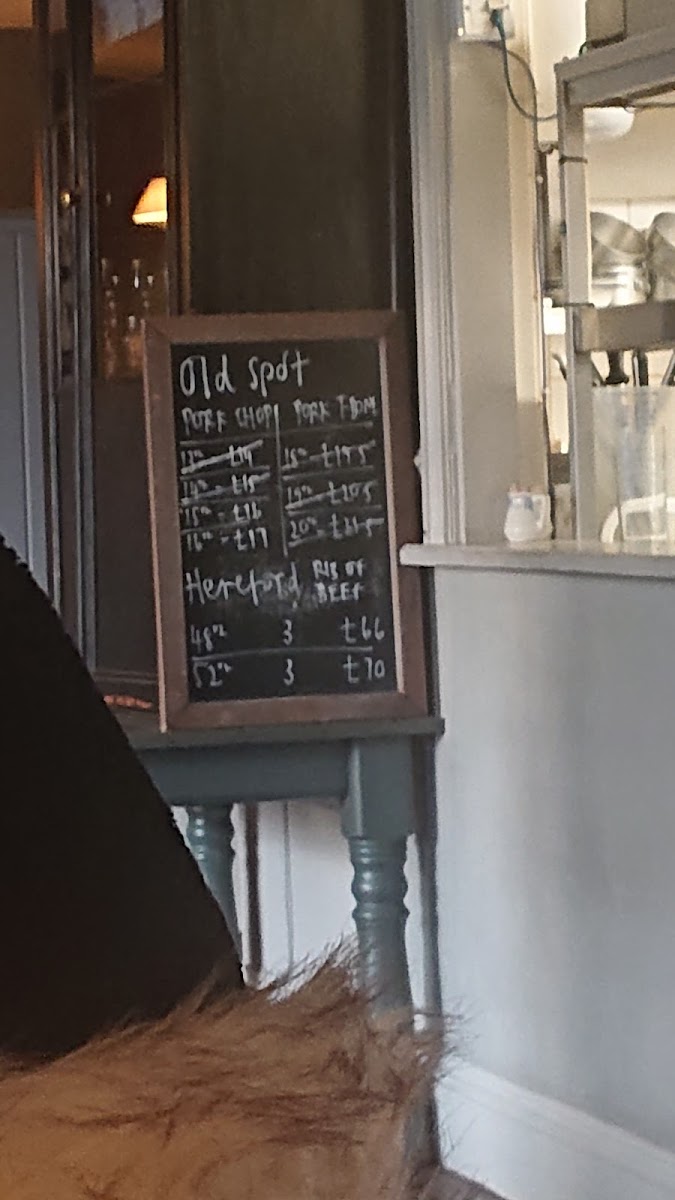 Old Spot
PORK CHOP PORK T-BONE
13oz - £14 18oz - £19.5
14oz - £15 19oz - £20.5
15oz - £16 20oz - £21.5
16oz - £17
Hereford RIB OF BEEF
48oz 3 £66
52oz 3 £70